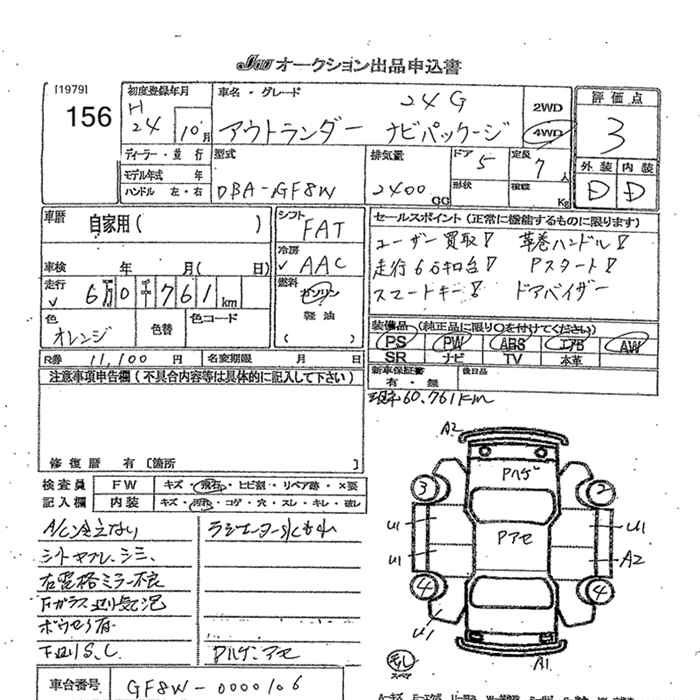 JU オークション出品申込書
[1979]
156
初度登録年月
H
24 10月
車名・グレード
24G
アウトランダー ナビパッケージ
2WD
4WD
評価点
3
外装 内装
D D
ディーラー・並行
モデル年式 年
ハンドル 左・右
型式
DBA-GF8W
排気量
2400
CC
ドア
5
形状
定員
7人
積載
Kg
車歴
自家用( )
車検 年 月( 日)
走行
6万0千761km
色
オレンジ
色替
色コード
シフト
FAT
冷房
AAC
燃料
ガソリン
軽油
( )
セールスポイント(正常に機能するものに限ります)
ユーザー買取! 革巻ハンドル!
走行6万キロ台! Pスタート!
スマートキー! ドアバイザー
装備品(純正品に限り○を付けてください)
PS PW ABS エアB AW
SR ナビ TV 本革
新車保証書
有・無
後日品
R券 11,100円 名変期限 月 日
注意事項申告欄(不具合内容等は具体的に記入して下さい)
現車60.761km
修復歴 有〔箇所 〕
検査員 FW キズ・飛石・ヒビ割・リペア跡・×要
記入欄 内装 キズ・汚れ・コゲ・穴・スレ・キレ・破レ
ラジエーター水もれ
シートヤブレ、シミ、
右電格ミラー不良
Fガラス
下廻りS、C
Pハゲ、アセ
A2
Pハゲ
Pアセ
3 2
U1 U1
U1 A2
4 4
U1
A1
スペア
車台番号 GF8W-0000106